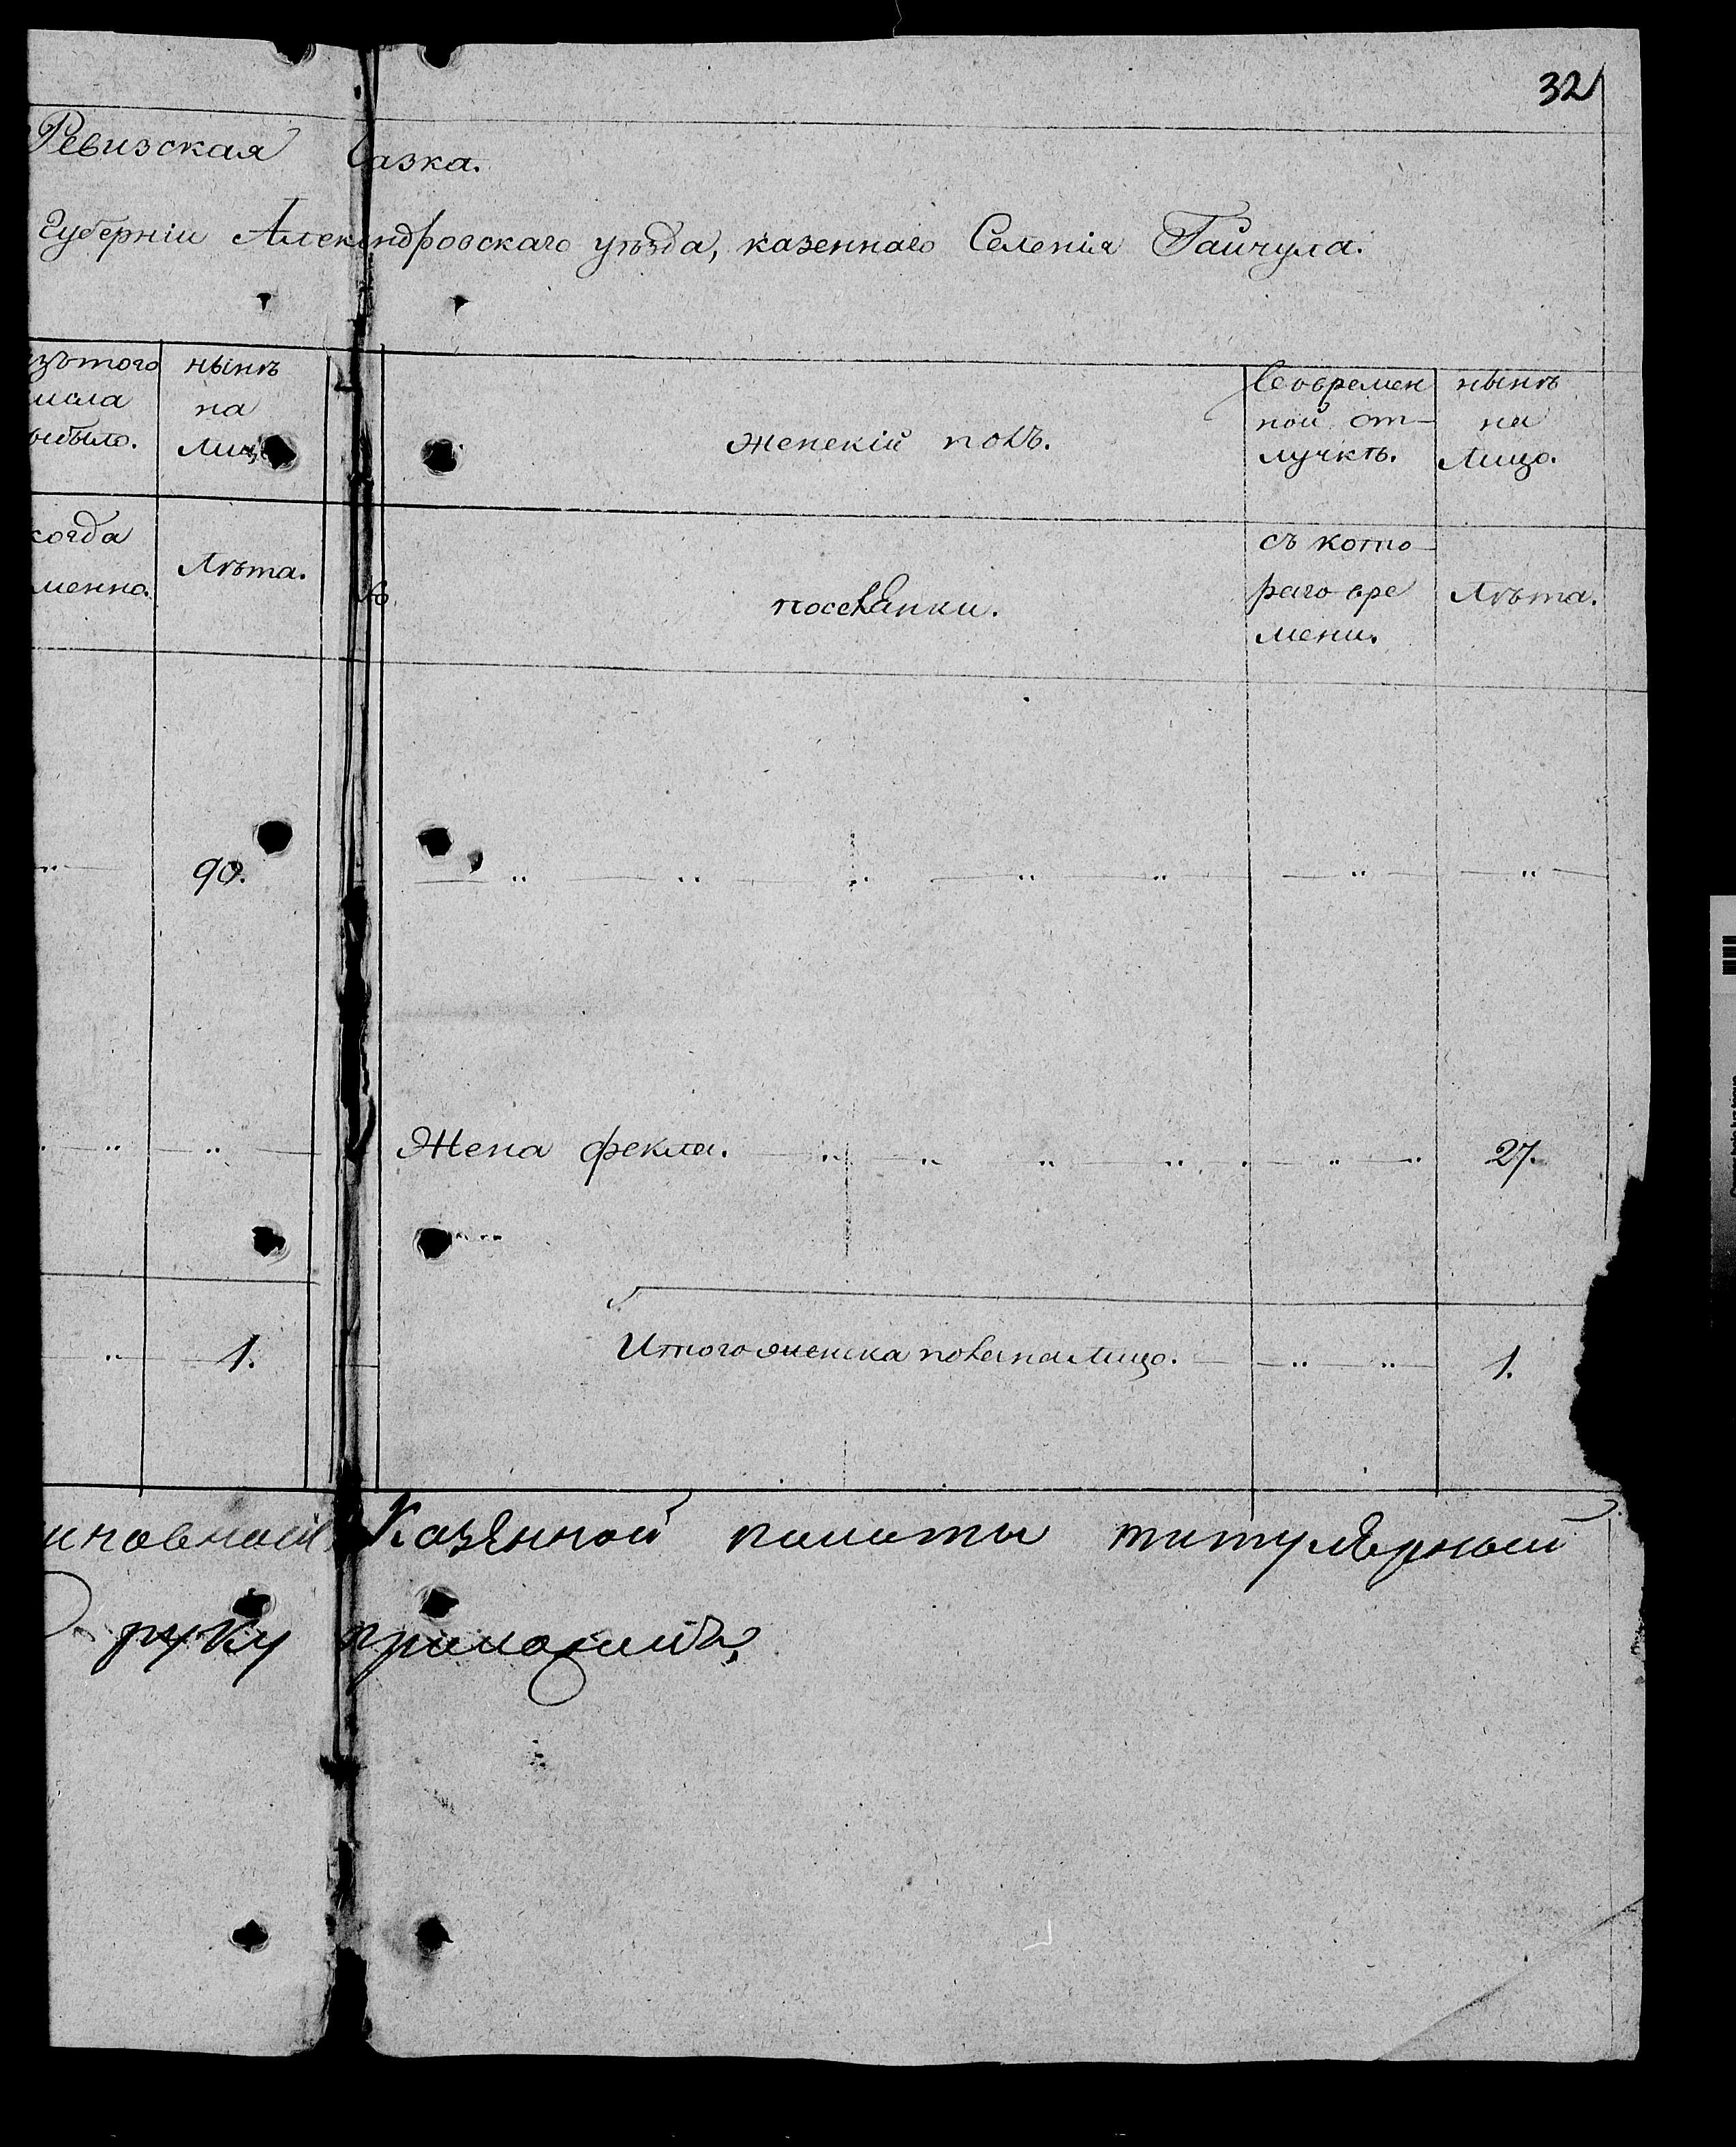 32
Ревизская Сказка.
Губерніи Александровскаго уѣзда, казеннаго Селенія Гайчула.
изътого
числа
выбыло.
нынѣ
на
Лицо
женскій полъ.
Вовремен
ной от-
лучкѣ.
нынѣ
на
Лицо.
когда
именно.
Лѣта.
№
поселянки.
съ кото-
раго вре
мени.
Лѣта.
90.
Жена фекла. 27.
1.
Итого женска пола налицо. 1.
Казенной палаты титулярный
руку приложилъ,